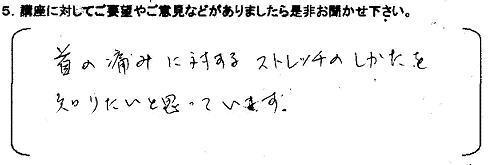 5. 講座に対してご要望やご意見などがありましたら是非お聞かせ下さい。
首の痛みに対する ストレッチの しかたを
知りたいと思っています。